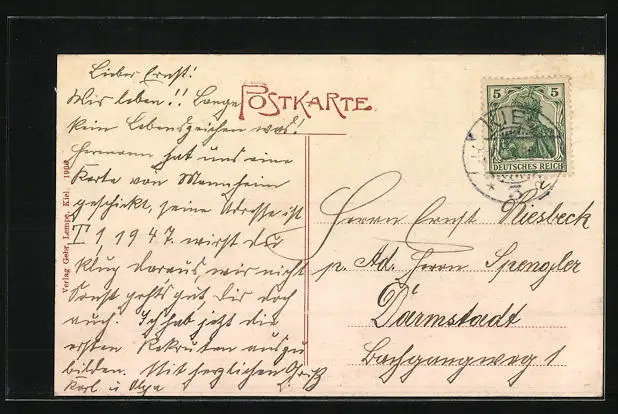 Lieber Ernst!
Wir leben!! Lange
kein Lebenszeichen was!
Hermann hat uns eine
Karte von Mannheim
geschickt, seine Adresse ist
T 1 1947. wirst du
klug daraus, wir nicht
Sonst gehts gut, Dir doch
auch. Ich hab jetzt die
ersten Rekruten auszu
bilden. Mit herzlichen Grüß
Karl u Olga
POSTKARTE
Verlag Gebr. Lempe, Kiel 1906
5 5
DEUTSCHES REICH
KIEL
Herrn Ernst Riesbeck
p. Ad. Herrn Spengler
Darmstadt
Bachgangweg 1